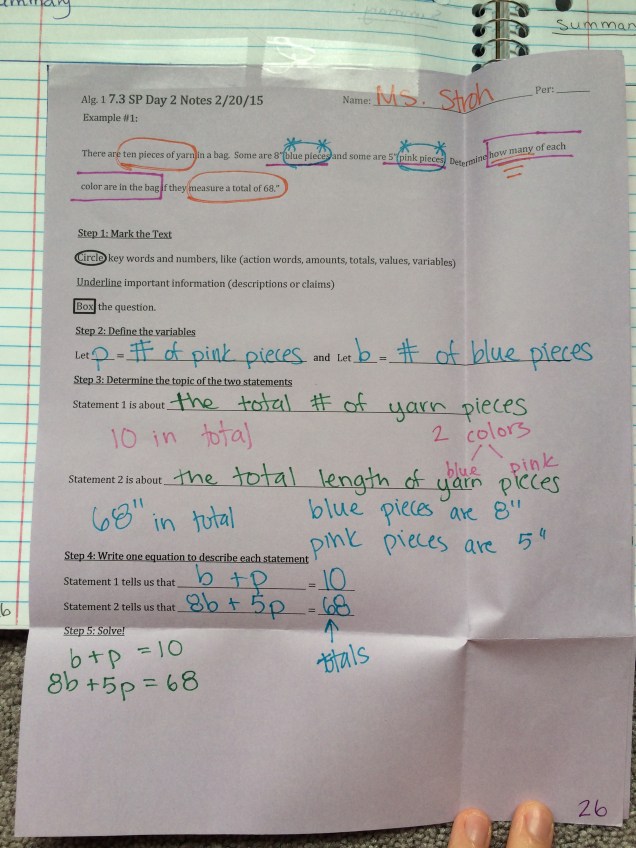 Summary
Alg. 1 7.3 SP Day 2 Notes 2/20/15 Name: Ms. Stroh Per:
Example #1:
There are ten pieces of yarn in a bag. Some are 8" blue pieces and some are 5" pink pieces. Determine how many of each
color are in the bag if they measure a total of 68."
Step 1: Mark the Text
Circle key words and numbers, like (action words, amounts, totals, values, variables)
Underline important information (descriptions or claims)
Box the question.
Step 2: Define the variables
Let p = # of pink pieces and Let b = # of blue pieces
Step 3: Determine the topic of the two statements
Statement 1 is about the total # of yarn pieces
10 in total 2 colors
blue pink
Statement 2 is about the total length of yarn pieces
68" in total blue pieces are 8"
pink pieces are 5"
Step 4: Write one equation to describe each statement
Statement 1 tells us that b + p = 10
Statement 2 tells us that 8b + 5p = 68
Step 5: Solve!
totals
b + p = 10
8b + 5p = 68
26